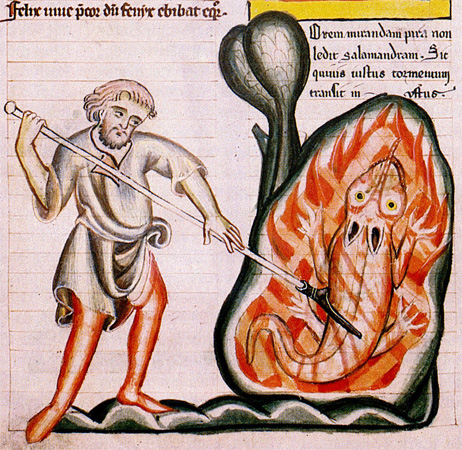 Felix uiuc p̄cor dū fenix ebibat eq̄r.
Ovem mirandam pira non
ledit salamandram. Sic
quiuis iustus tormentum
transit in ustus.